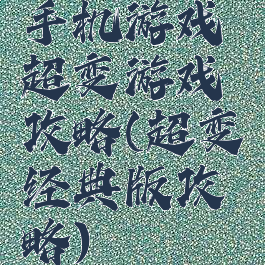 手机游戏
超变游戏
攻略(超变
经典版攻
略)